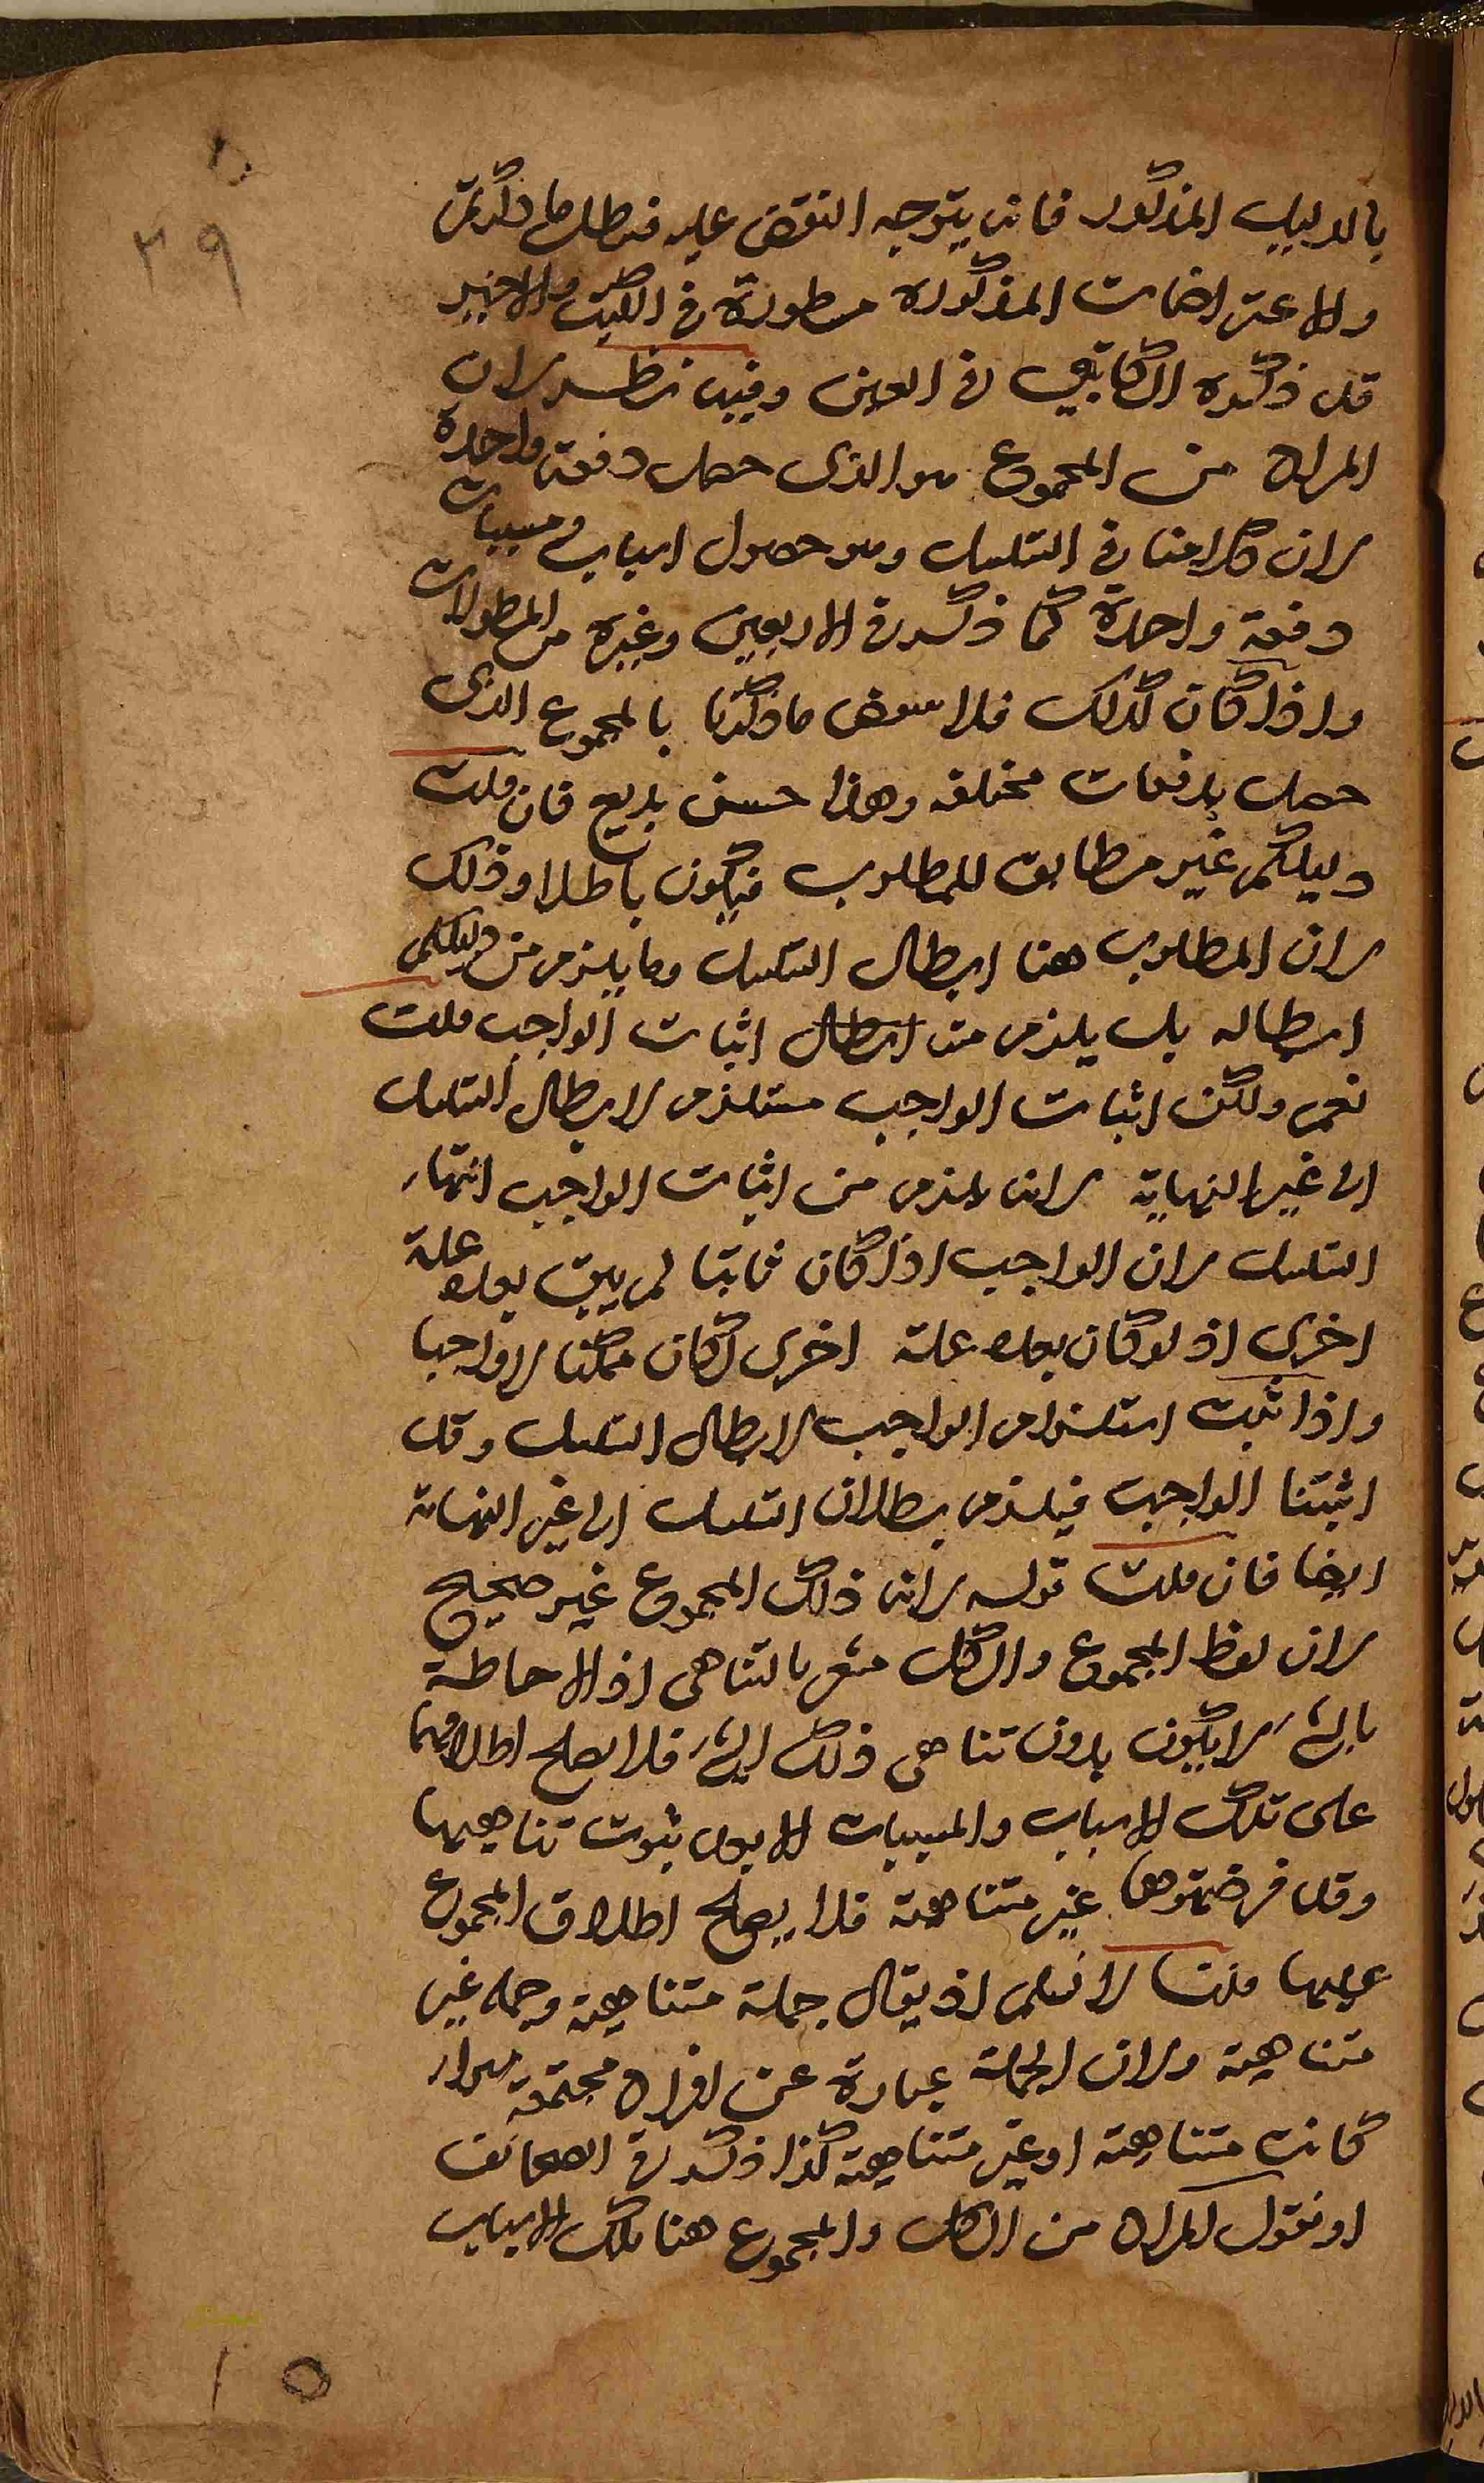 بالدليل المذكور فانه يتوجه النقض عليه فبطل ما ذكرتم
والاعتراضات المذكورة مسطورة في الكتب والاخير
قد ذكره الكاتبي في العين وفيه نظر لان
المراد من المجموع هو الذى حصل دفعة واحدة
لان كلامنا في التسلسل وهو حصول اسباب ومسببات
دفعة واحدة كما ذكر في الاربعين وغيره من المطولات
واذا كان كذلك فلا ينتقض ما ذكرنا بالمجموع الذى
حصل بدفعات مختلفة وهذا حسن بديع فان قلت
دليلكم غير مطابق للمطلوب فيكون باطلا وذلك
لان المطلوب هنا ابطال التسلسل وما يلزم من دليلكم
ابطاله بل يلزم منه ابطال اثبات الواجب قلت
نعم ولكن اثبات الواجب مستلزم لابطال التسلسل
الى غير النهاية لانه يلزم من اثبات الواجب انتهاء
التسلسل لان الواجب اذا كان ثابتا لم يبق بعده علة
اخرى اذ لو كان بعده علة اخرى لكان ممكنا لا واجبا
واذا ثبت استلزام الواجب لابطال التسلسل وقد
اثبتنا الواجب فيلزم بطلان التسلسل الى غير النهاية
ايضا فان قلت قوله لان ذلك المجموع غير صحيح
لان لفظ المجموع والكل مشعر بالتناهى اذ الاحاطة
بالشئ لا يكون بدون تناهى ذلك الشئ فلا يصلح اطلاقهما
على تلك الاسباب والمسببات الا بعد ثبوت تناهيها
وقد فرضتموها غير متناهية فلا يصلح اطلاق المجموع
عليها قلنا لا نسلم اذ يقال جملة متناهية وجملة غير
متناهية ولان الجملة عبارة عن افراد مجتمعة سواء
كانت متناهية او غير متناهية كذا ذكر في الصحائف
او نقول المراد من الكل والمجموع هنا تلك الاسباب
٣٩